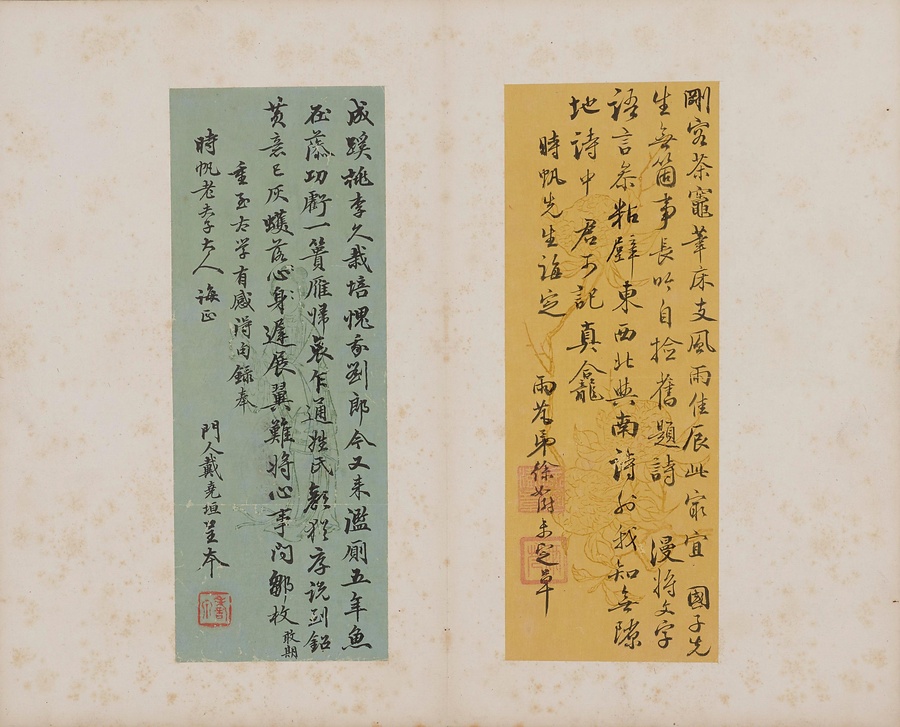 剛容茶竈筆床支風雨佳辰此㝡宜 國子先
生無箇事長吟自撿舊題詩 漫將文字
語言叅粘壁東西北與南詩外我知無隙
地詩中 君可記真龕
時帆先生誨定
雨芃弟徐 未定草
成蹊桃李久栽培愧我劉郎今又来濫廁五年魚
在藻功虧一簣雁歸哀乍通姓氏顏猶厚説到鉛
黄意已灰蠖落心身遲展翼難將心事问鄒枚
敢期
重至太学有感得句錄奉
時帆老夫子大人 誨正
門人戴堯垣呈本